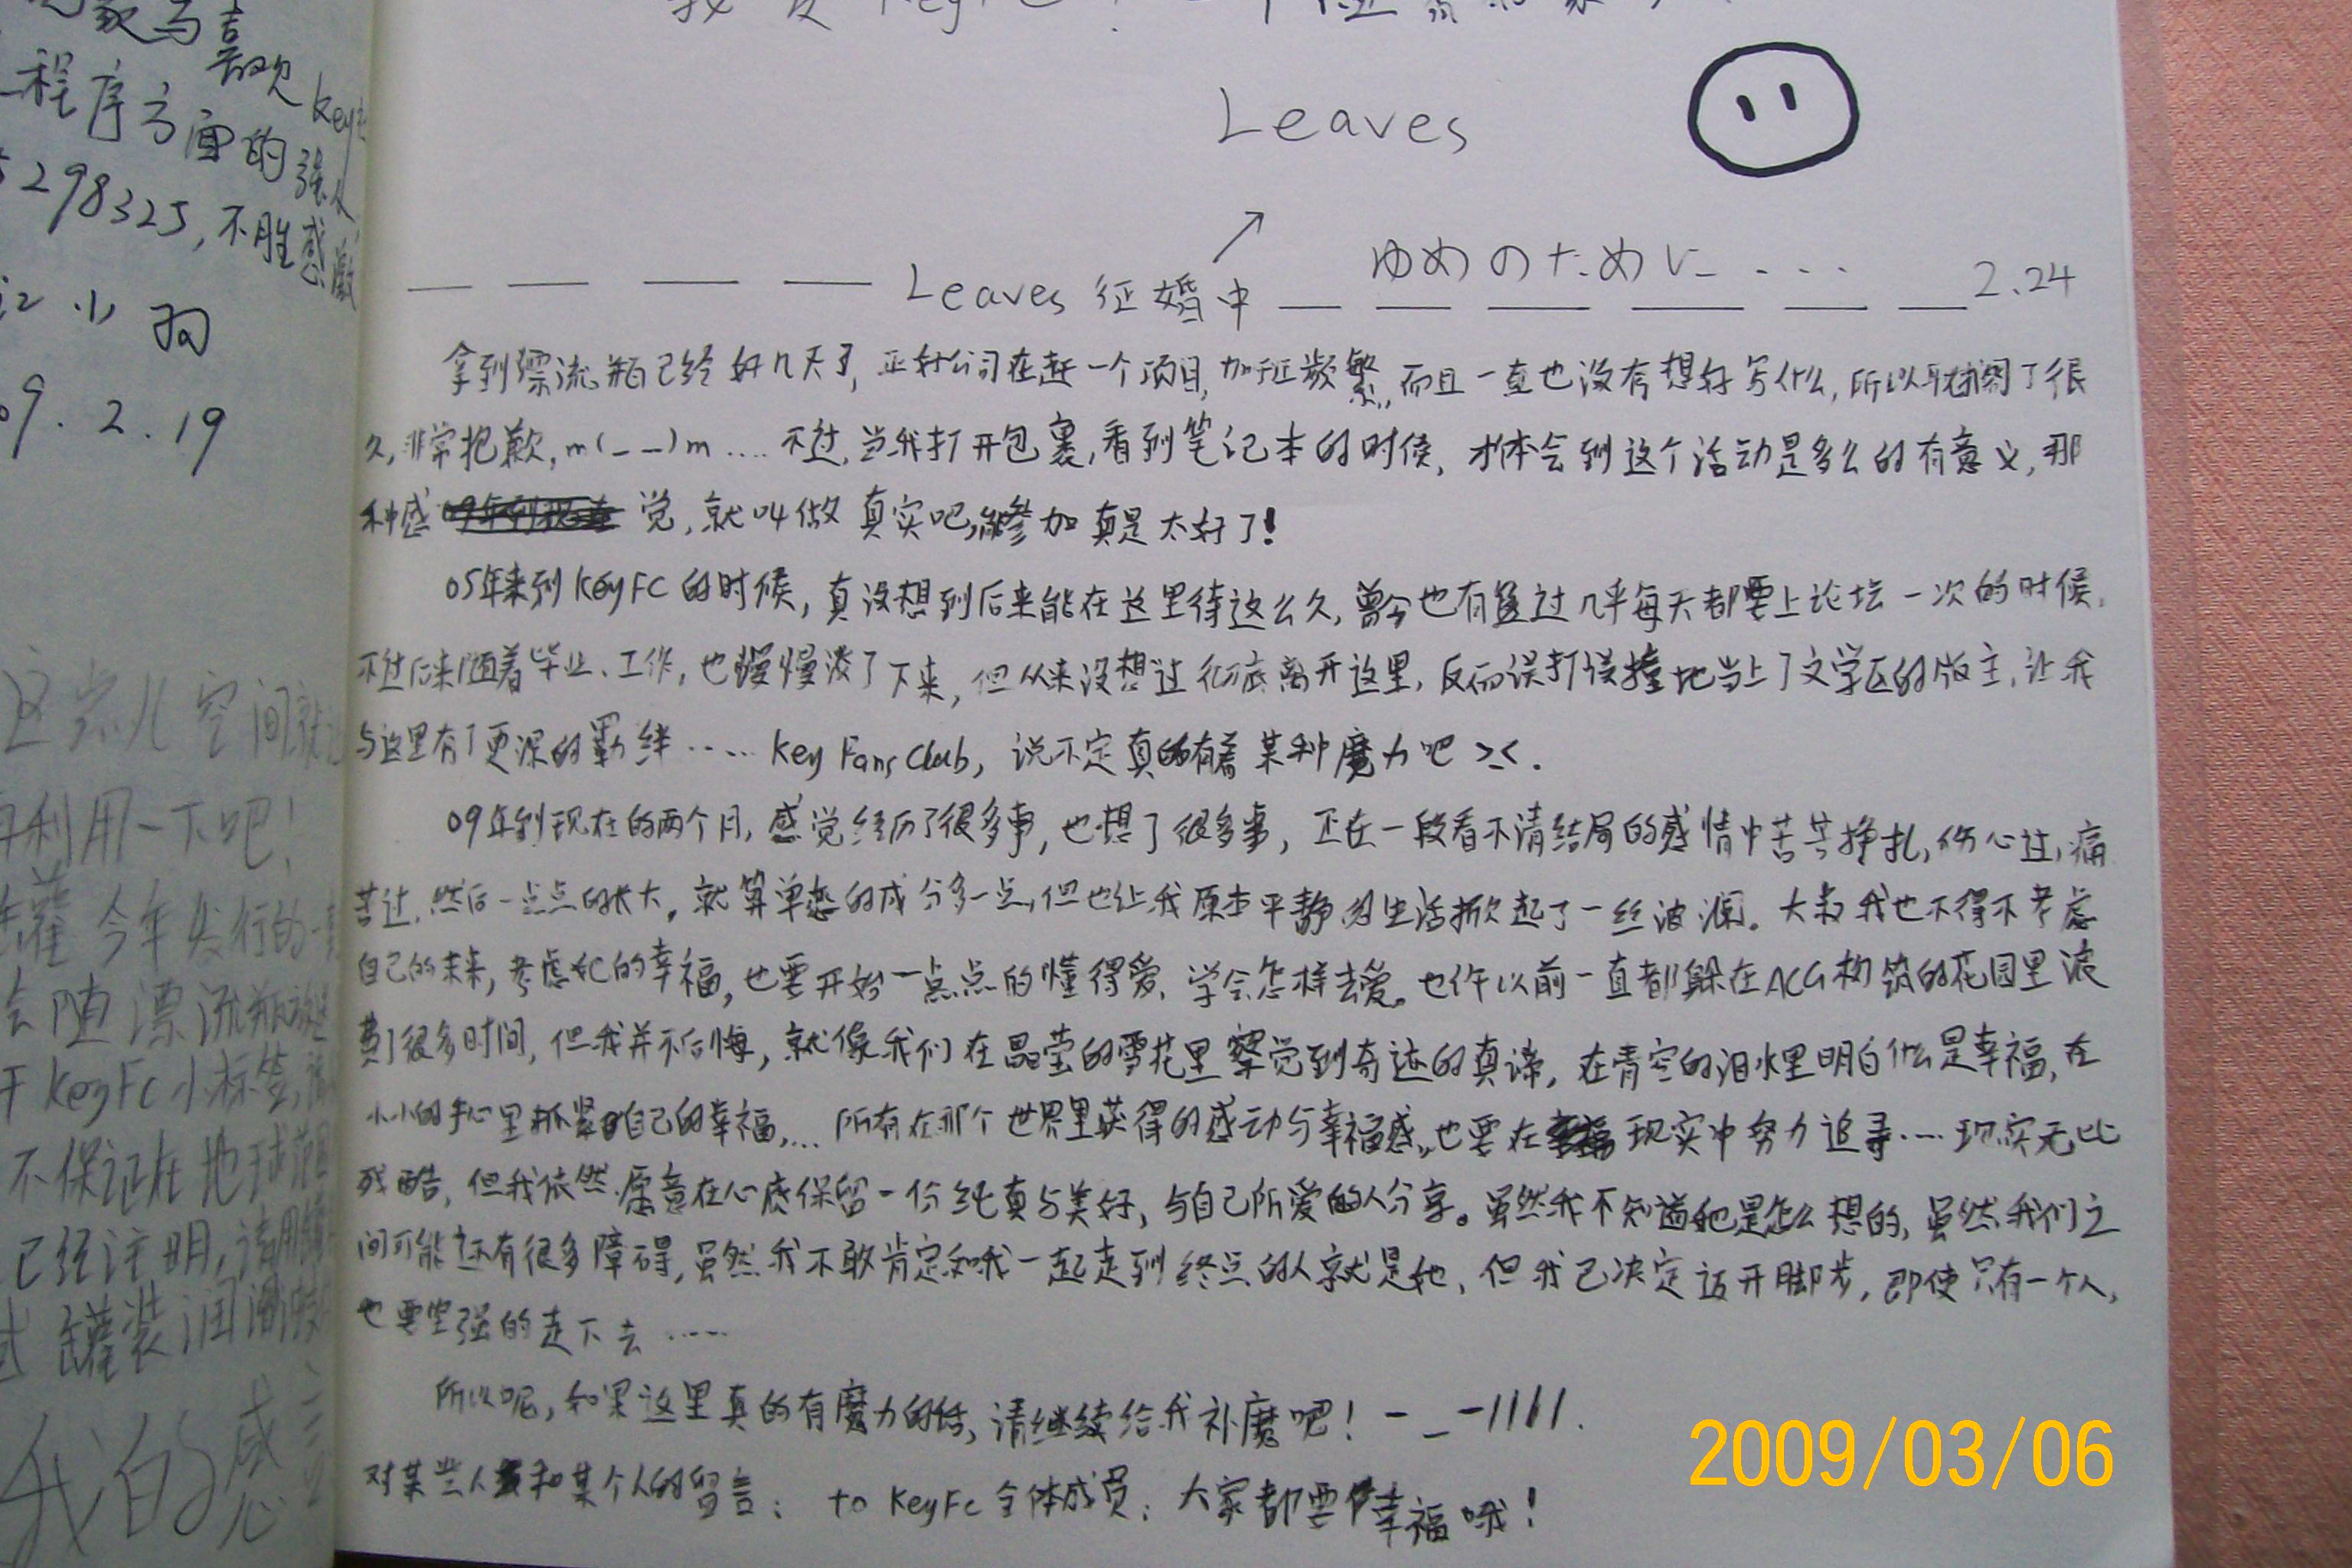 喜欢 Key
程序方面的强人
298325, 不胜感激
小羽
09. 2. 19
这点儿空间就
再利用一下吧！
罐 今年发行的一
会随漂流瓶
于KeyFc小标签,
不保证在地球范围
已经注明, 请
罐装润
我的感
Leaves
ゆめのために....
Leaves 征婚中
2.24
拿到漂流瓶已经好几天了, 正好公司在赶一个项目, 加班频繁, 而且一直也没有想好写什么, 所以耽搁了很
久, 非常抱歉, m(_ _)m .... 不过, 当我打开包裹, 看到笔记本的时候, 才体会到这个活动是多么的有意义, 那
种感觉, 就叫做真实吧, 能参加真是太好了!
05年来到KeyFC的时候, 真没想到后来能在这里待这么久, 曾今也有过几乎每天都要上论坛一次的时候,
不过后来随着毕业、工作, 也慢慢淡了下来, 但从来没想过彻底离开这里, 反而误打误撞地当上了文学区的版主, 让我
与这里有了更深的羁绊...... Key Fans Club, 说不定真的有着某种魔力吧 >_<.
09年到现在的两个月, 感觉经历了很多事, 也想了很多事, 正在一段看不清结局的感情中苦苦挣扎, 伤心过, 痛
苦过, 然后一点点的长大。就算单恋的成分多一点, 但也让我原本平静的生活掀起了一丝波澜。大叔我也不得不考虑
自己的未来, 考虑她的幸福, 也要开始一点点的懂得爱、学会怎样去爱。也许以前一直都躲在ACG构筑的花园里浪
费了很多时间, 但我并不后悔, 就像我们在晶莹的雪花里察觉到奇迹的真谛, 在青空的泪水里明白什么是幸福, 在
小小的手心里抓紧自己的幸福,... 所有在那个世界里获得的感动与幸福感, 也要在现实中努力追寻.... 现实无比
残酷, 但我依然愿意在心底保留一份纯真与美好, 与自己所爱的人分享。虽然我不知道她是怎么想的, 虽然我们之
间可能还有很多障碍, 虽然我不敢肯定和我一起走到终点的人就是她, 但我已决定迈开脚步, 即使只有一个人,
也要坚强的走下去......
所以呢, 如果这里真的有魔力的话, 请继续给我补魔吧！ -_-||||.
对某些人和某个人的留言： to KeyFc全体成员：大家都要幸福哦！
2009/03/06